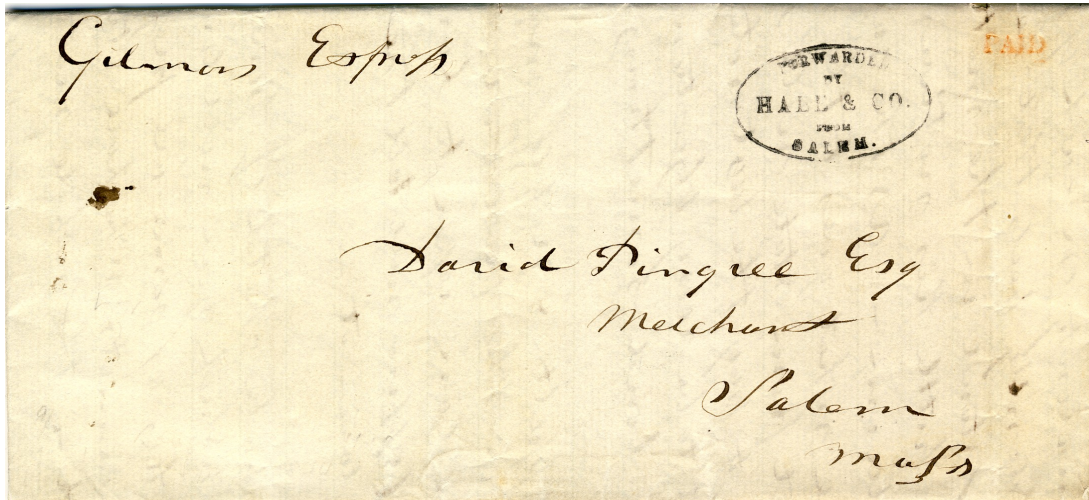 Gilmors Express
PAID
FORWARDED
BY
HALE & CO.
FROM
SALEM.
David Pingree Esq
Merchant
Salem
Mass